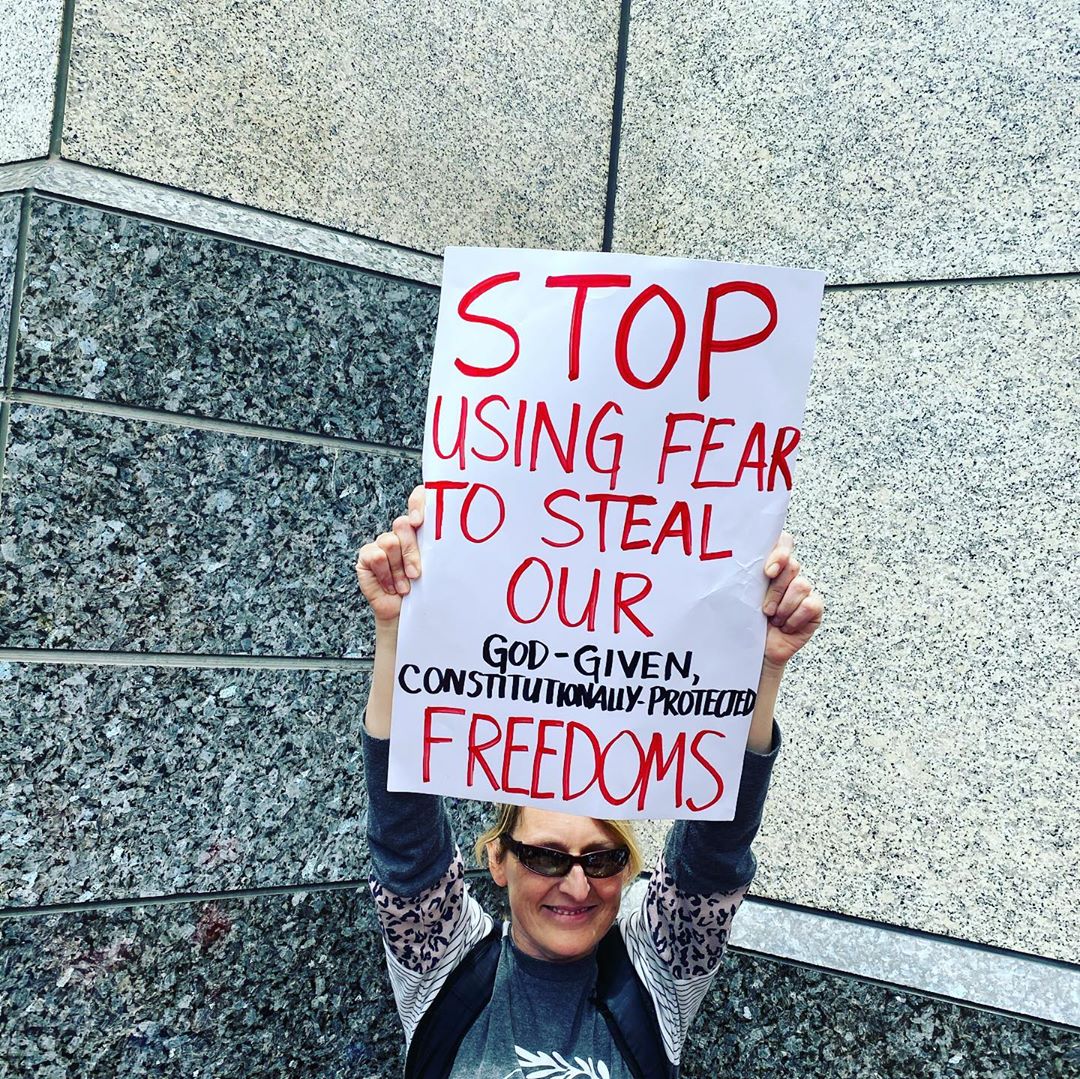 STOP
USING FEAR
TO STEAL
OUR
GOD-GIVEN,
CONSTITUTIONALLY-PROTECTED
FREEDOMS